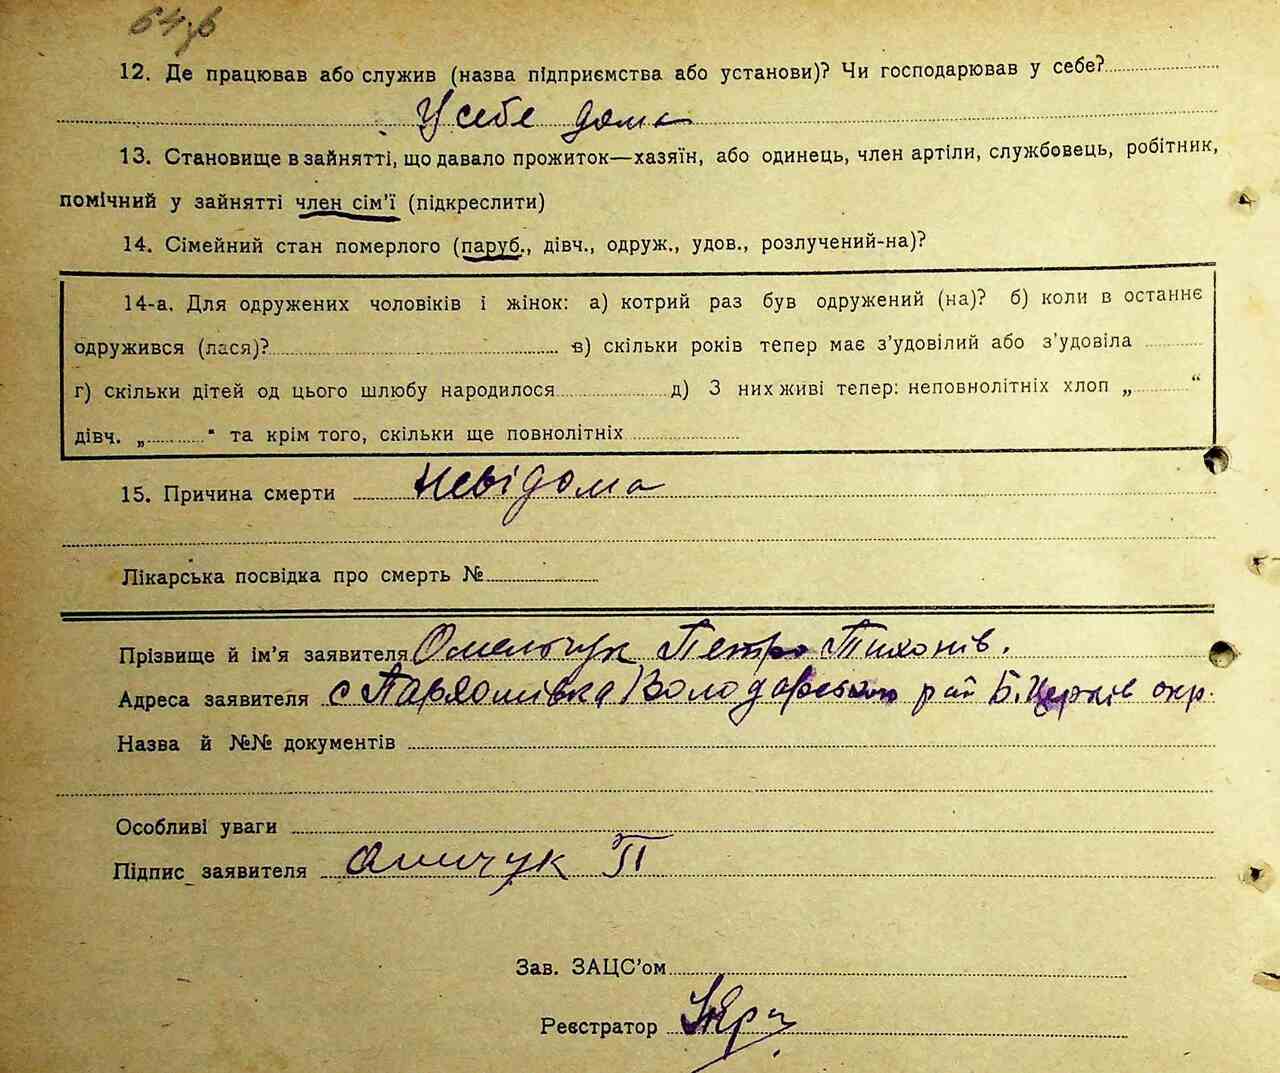 64зв
12. Де працював або служив (назва підприємства або установи)? Чи господарював у себе?
У себе дома
13. Становище в зайнятті, що давало прожиток—хазяїн, або одинець, член артіли, службовець, робітник,
помічний у зайнятті член сім'ї (підкреслити)
14. Сімейний стан померлого (паруб., дівч., одруж., удов., розлучений-на)?
14-а. Для одружених чоловіків і жінок: а) котрий раз був одружений (на)? б) коли в останнє
одружився (лася)? в) скільки років тепер має з'удовілий або з'удовіла
г) скільки дітей од цього шлюбу народилося д) З них живі тепер: неповнолітніх хлоп „ “
дівч. „ “ та крім того, скільки ще повнолітніх
15. Причина смерти Невідома
Лікарська посвідка про смерть №
Прізвище й ім'я заявителя Омельчук Петро Тихонів.
Адреса заявителя с Пархомівка Володарського рай Б. Церків окр.
Назва й №№ документів
Особливі уваги
Підпис заявителя Омичук П
Зав. ЗАЦС'ом
Реєстратор